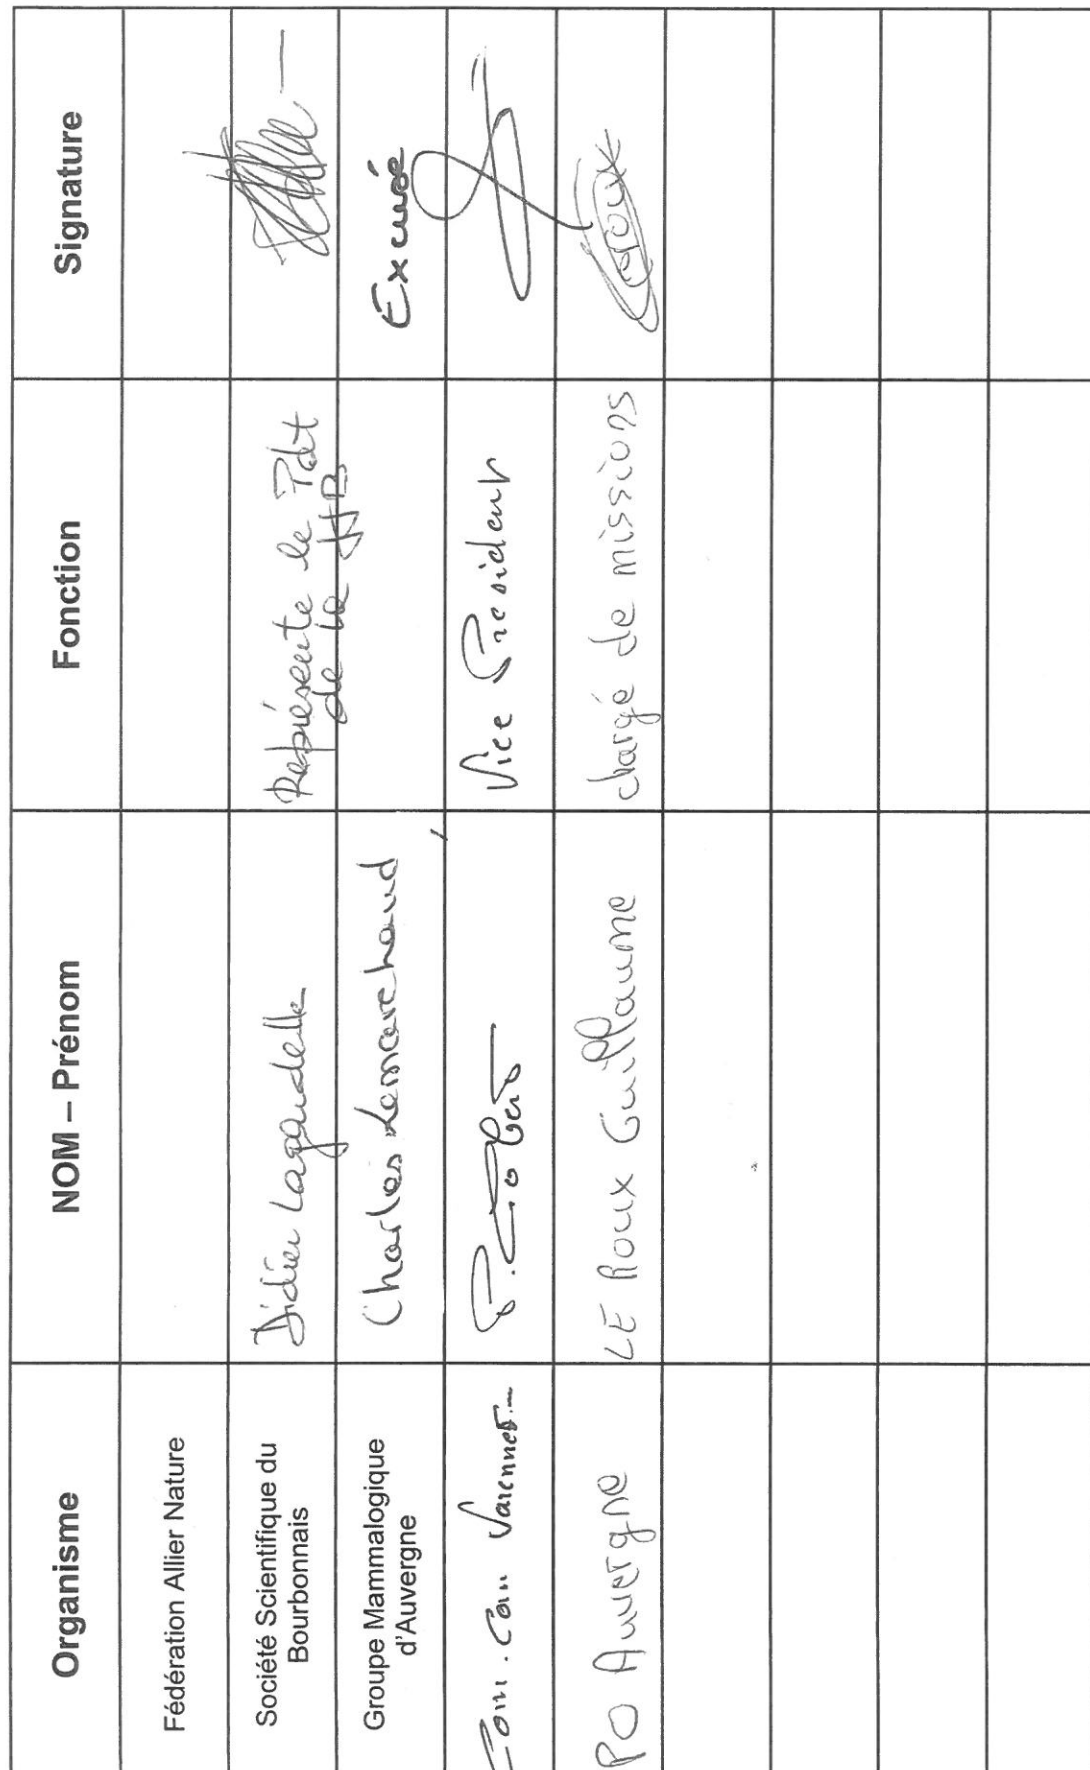 Organisme NOM – Prénom Fonction Signature
Fédération Allier Nature
Société Scientifique du
Bourbonnais
Didier Lagardelle
Représente le Pdt
de la
Groupe Mammalogique
d'Auvergne
Charles Lemarchand
Excusé
Com. Com Varennes
Vice President
PO Auvergne
LE ROUX Guillaume
chargé de missions